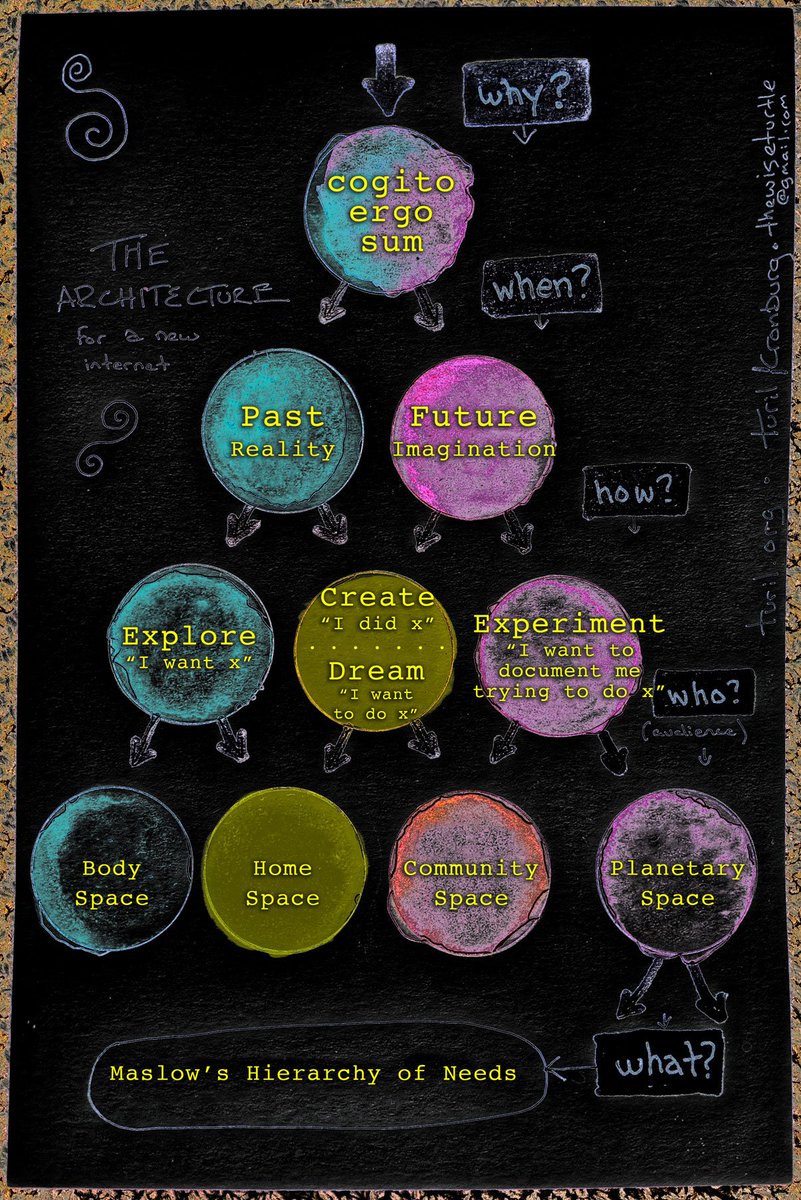 why?
cogito
ergo
sum
THE
ARCHITECTURE
for a new
internet
when?
Past
Reality
Future
Imagination
how?
Explore
“I want x”
Create
“I did x”
.......
Dream
“I want
to do x”
Experiment
“I want to
document me
trying to do x”
who?
(audience)
Body
Space
Home
Space
Community
Space
Planetary
Space
what?
Maslow’s Hierarchy of Needs
turil.org • turil Cronburg • thewiseturtle
@gmail.com